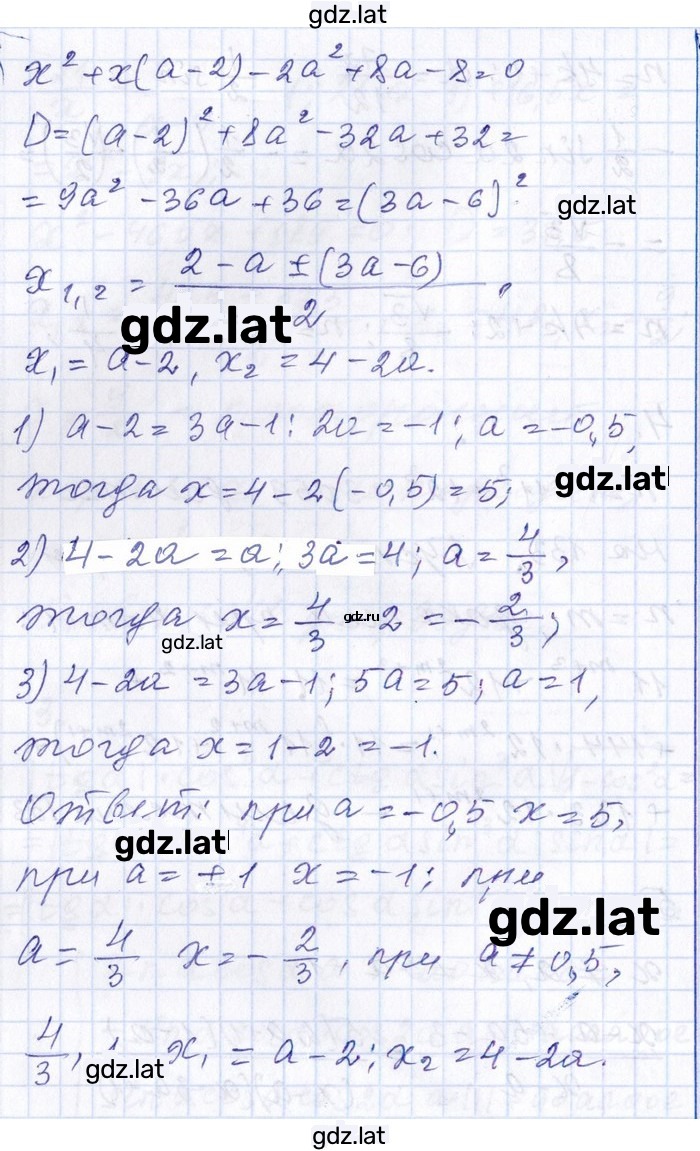 gdz.lat
x² + x(a-2) - 2a² + 8a - 8 = 0
D = (a-2)² + 8a² - 32a + 32 =
= 9a² - 36a + 36 = (3a-6)²
gdz.lat
x₁,₂ = (2 - a ± (3a-6))/2,
gdz.lat
x₁ = a-2, x₂ = 4-2a.
1) a-2 = 3a-1: 2a = -1; a = -0,5,
тогда x = 4-2(-0,5) = 5;
gdz.lat
2) 4-2a = a; 3a = 4; a = 4/3,
тогда x = 4/3 gdz.ru 2 = -2/3;
gdz.lat
3) 4-2a = 3a-1; 5a = 5; a = 1,
тогда x = 1-2 = -1.
Ответ: при a = -0,5 x = 5,
gdz.lat
при a = +1 x = -1; при
gdz.lat
a = 4/3 x = -2/3, при a ≠ 0,5,
4/3, 1 x₁ = a-2; x₂ = 4-2a.
gdz.lat
gdz.lat